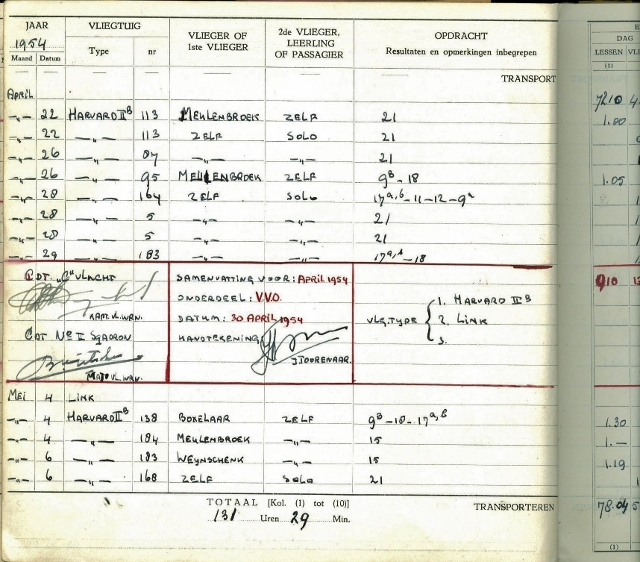 JAAR VLIEGTUIG VLIEGER OF 1ste VLIEGER 2de VLIEGER, LEERLING OF PASSAGIER OPDRACHT
1954
Maand Datum Type nr Resultaten en opmerkingen inbegrepen DAG
LESSEN
(1)
TRANSPORT
APRIL 72.10
-„- 22 HARVARD II B 113 MEULENBROEK ZELF 21 1.00
-„- 22 —„— 113 ZELF SOLO 21
-„- 26 —„— 07 —„— —„— 21
-„- 26 —„— 95 MEULENBROEK ZELF 9B - 18 1.05
-„- 28 —„— 164 ZELF SOLO 17a,b - 11 - 12 - 9a
-„- 28 —„— 5 —„— —„— 21
-„- 28 —„— 5 —„— —„— 21
-„- 29 —„— 183 —„— —„— 17a,b - 18
CDT. „C" VLUCHT
KAP. VL. WAN.
CDT No II SQADRON
MAJ. VL. WAN.
SAMENVATTING VOOR: APRIL 1954
ONDERDEEL: V.V.O.
DATUM: 30 APRIL 1954
HANDTEKENING
JJOORENAAR.
VLG. TYPE
1. HARVARD II B
2. LINK
3.
MEI 4 LINK
-„- 4 HARVARD II B 138 BOKELAAR ZELF 9B - 18 - 17a,b 1.30
-„- 4 —„— 184 MEULENBROEK —„— 15 1.—
-„- 6 —„— 183 WEYNSCHENK —„— 15 1.19
-„- 6 —„— 168 ZELF SOLO 21
TOTAAL [Kol. (1) tot (10)] TRANSPORTEREN 78.04
131 Uren 29 Min.
(1)